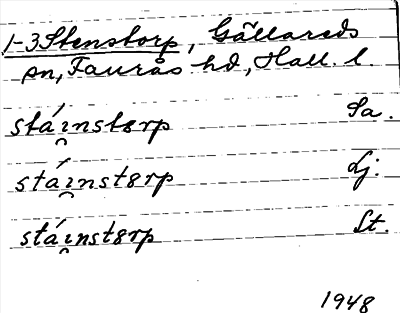 1-3 Stenstorp, Gällareds
sn, Faurås hd, Hall. l.
stá̀ı̯nstɵrp Sa.
stá̀ı̯nstɵrp Lj.
stá̀ı̯nstɵrp St.
1948